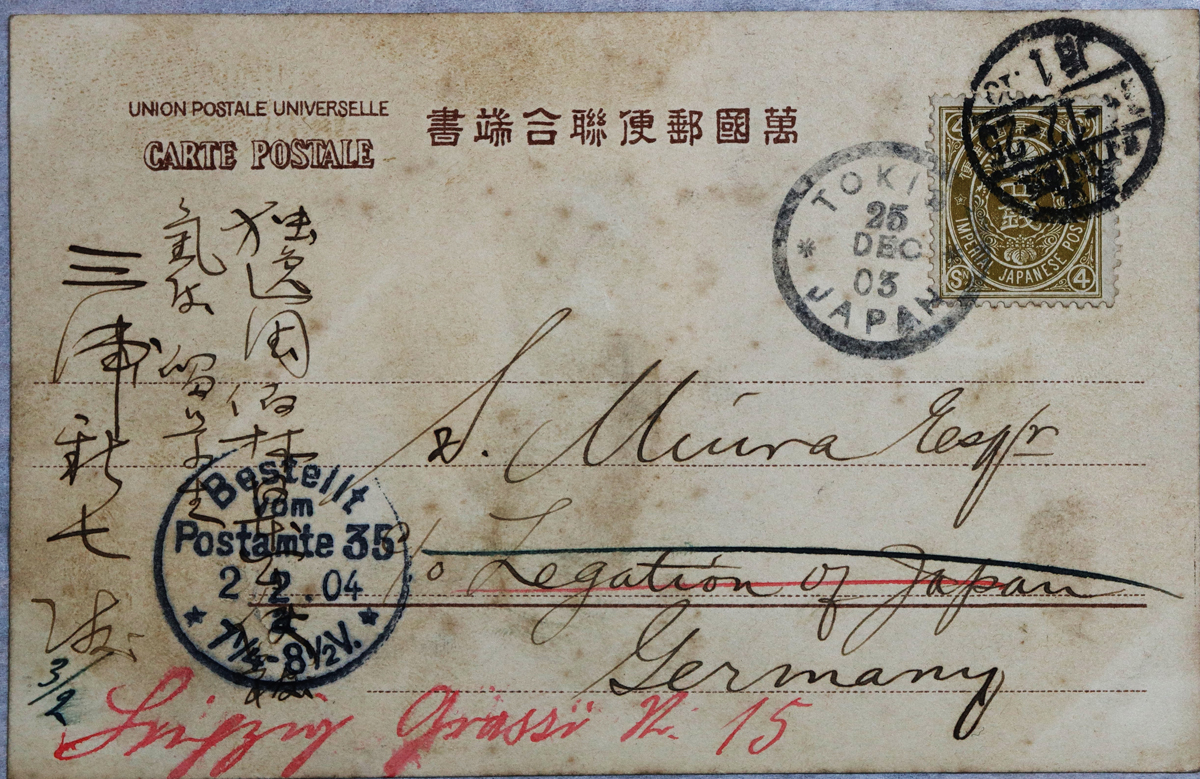 UNION POSTALE UNIVERSELLE
CARTE POSTALE
萬國郵便聯合端書
TOKIO
25
DEC
03
JAPAN
12-25
IMPERIAL JAPANESE POST
Sn 4
S. Miura Esqr
c/o Legation of Japan
Germany
独逸国伯林日本公使館
氣付 留学生
三浦新七殿
Bestellt
vom
Postamte 35
2. 2. 04
7½-8½V.
3/2
Leipzig Grassi Str. 15